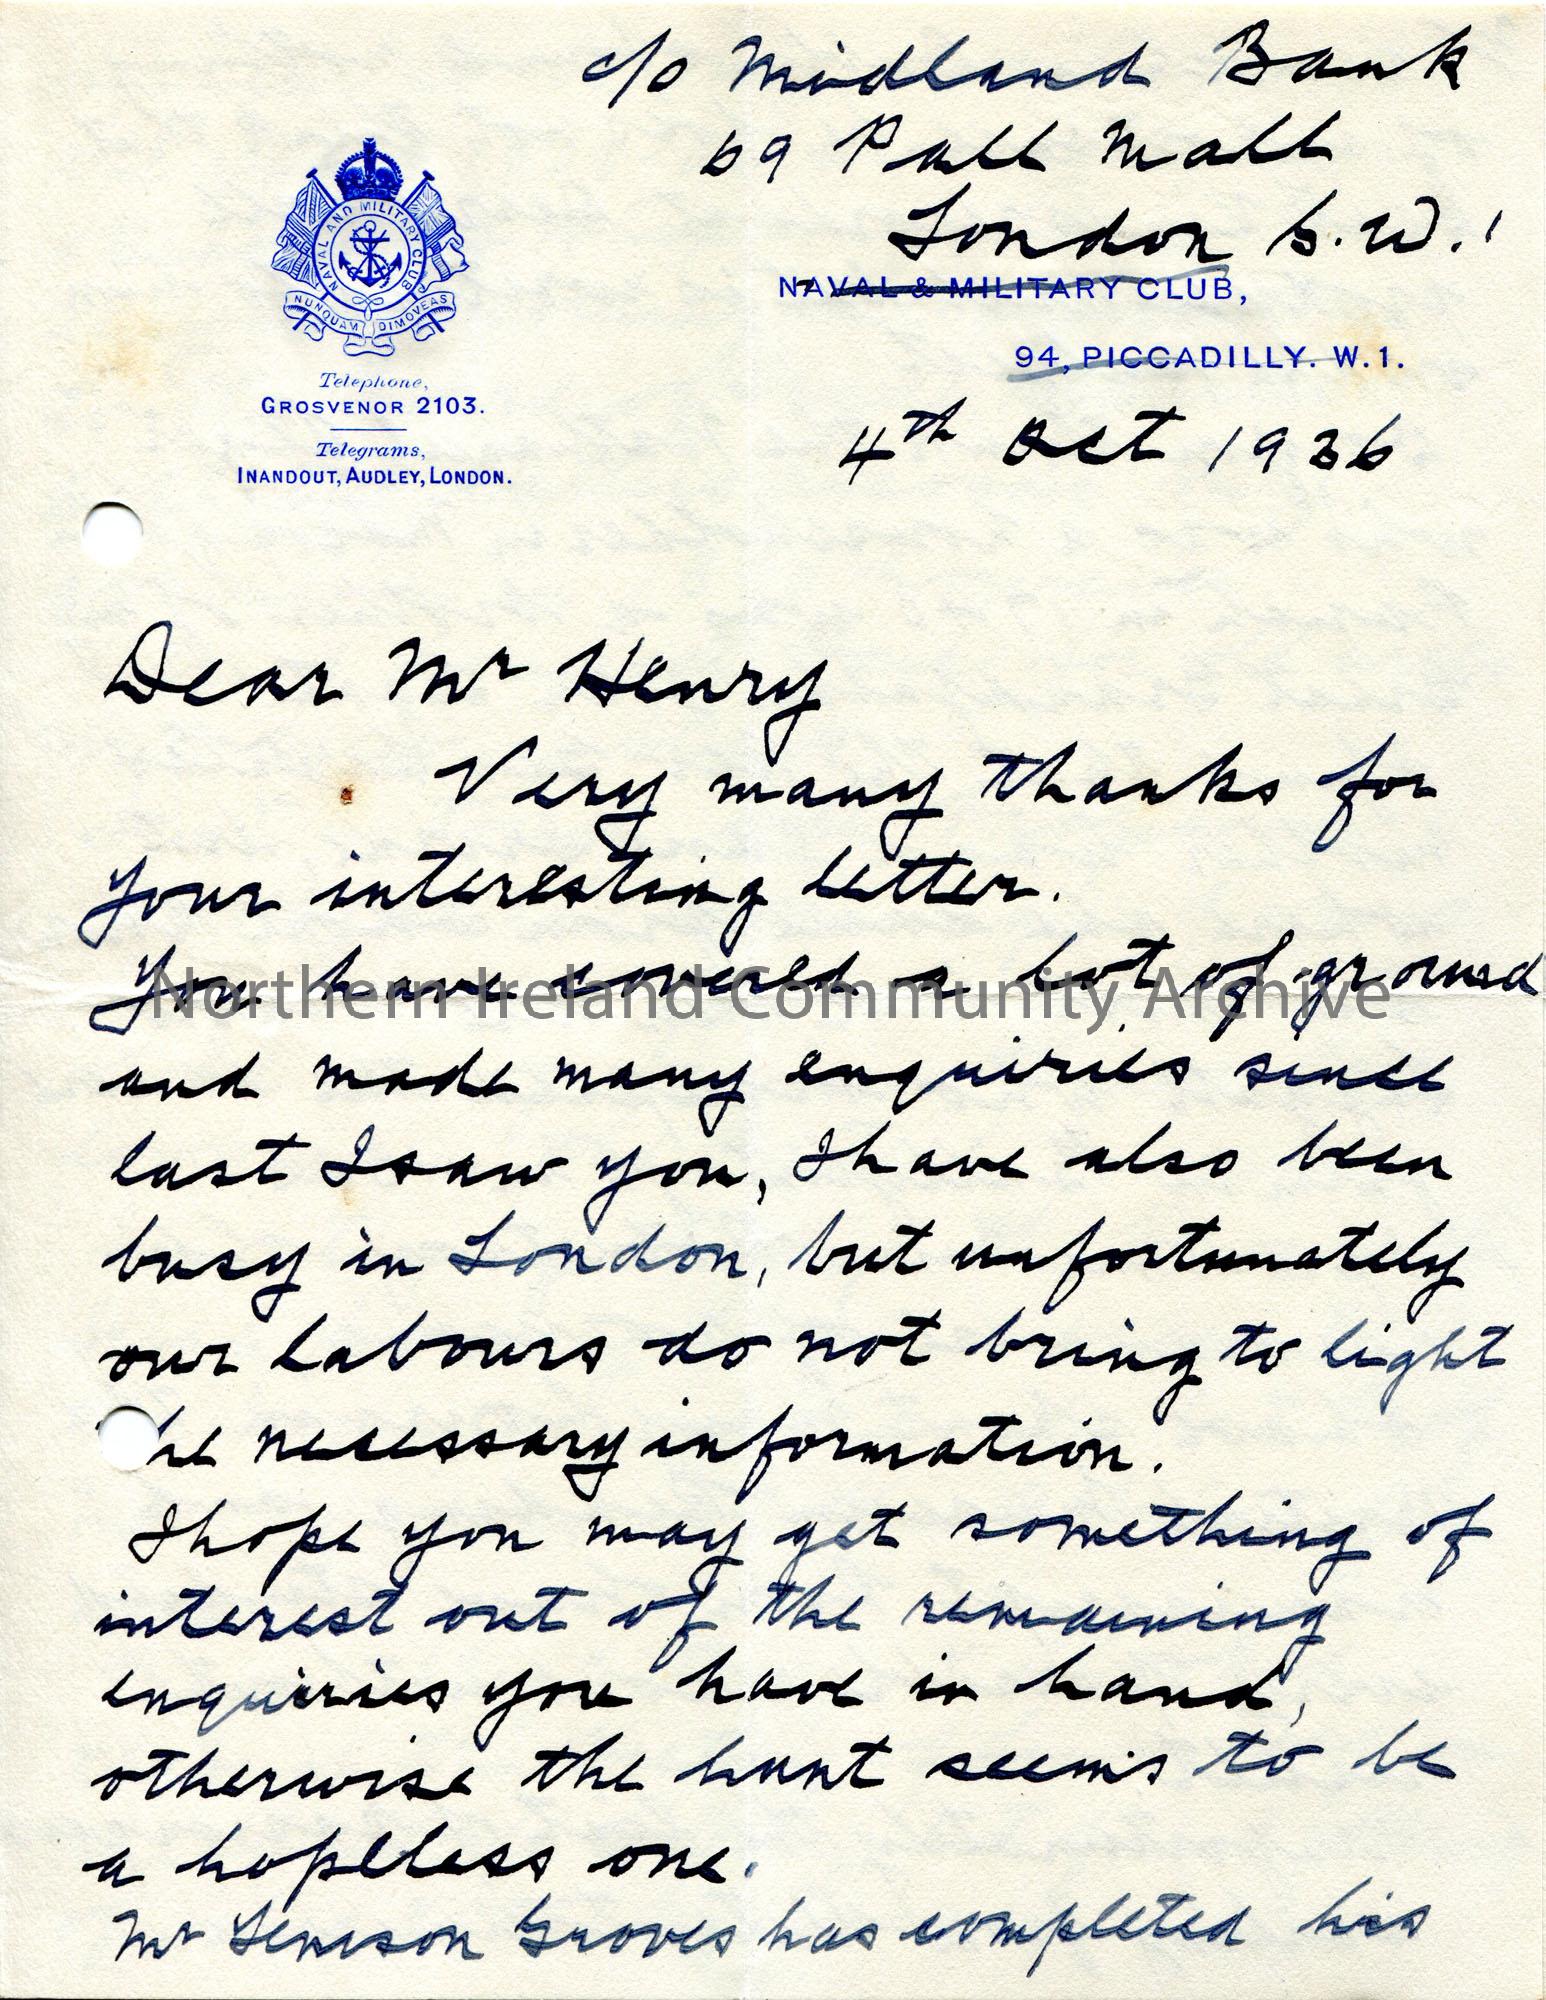 c/o Midland Bank
69 Pall Mall
London S.W.1
NAVAL AND MILITARY CLUB
NUNQUAM DIMOVEAS
NAVAL & MILITARY CLUB,
94, PICCADILLY. W.1.
Telephone,
GROSVENOR 2103.
Telegrams,
INANDOUT, AUDLEY, LONDON.
4th Oct 1936
Dear Mr Henry
Very many thanks for
your interesting letter.
You have covered a lot of ground
Northern Ireland Community Archive
and made many enquiries since
last I saw you, I have also been
busy in London, but unfortunately
our labours do not bring to light
he necessary information.
I hope you may get something of
interest out of the remaining
enquiries you have in hand,
otherwise the hunt seems to be
a hopeless one.
Mr Tenison Groves has completed his